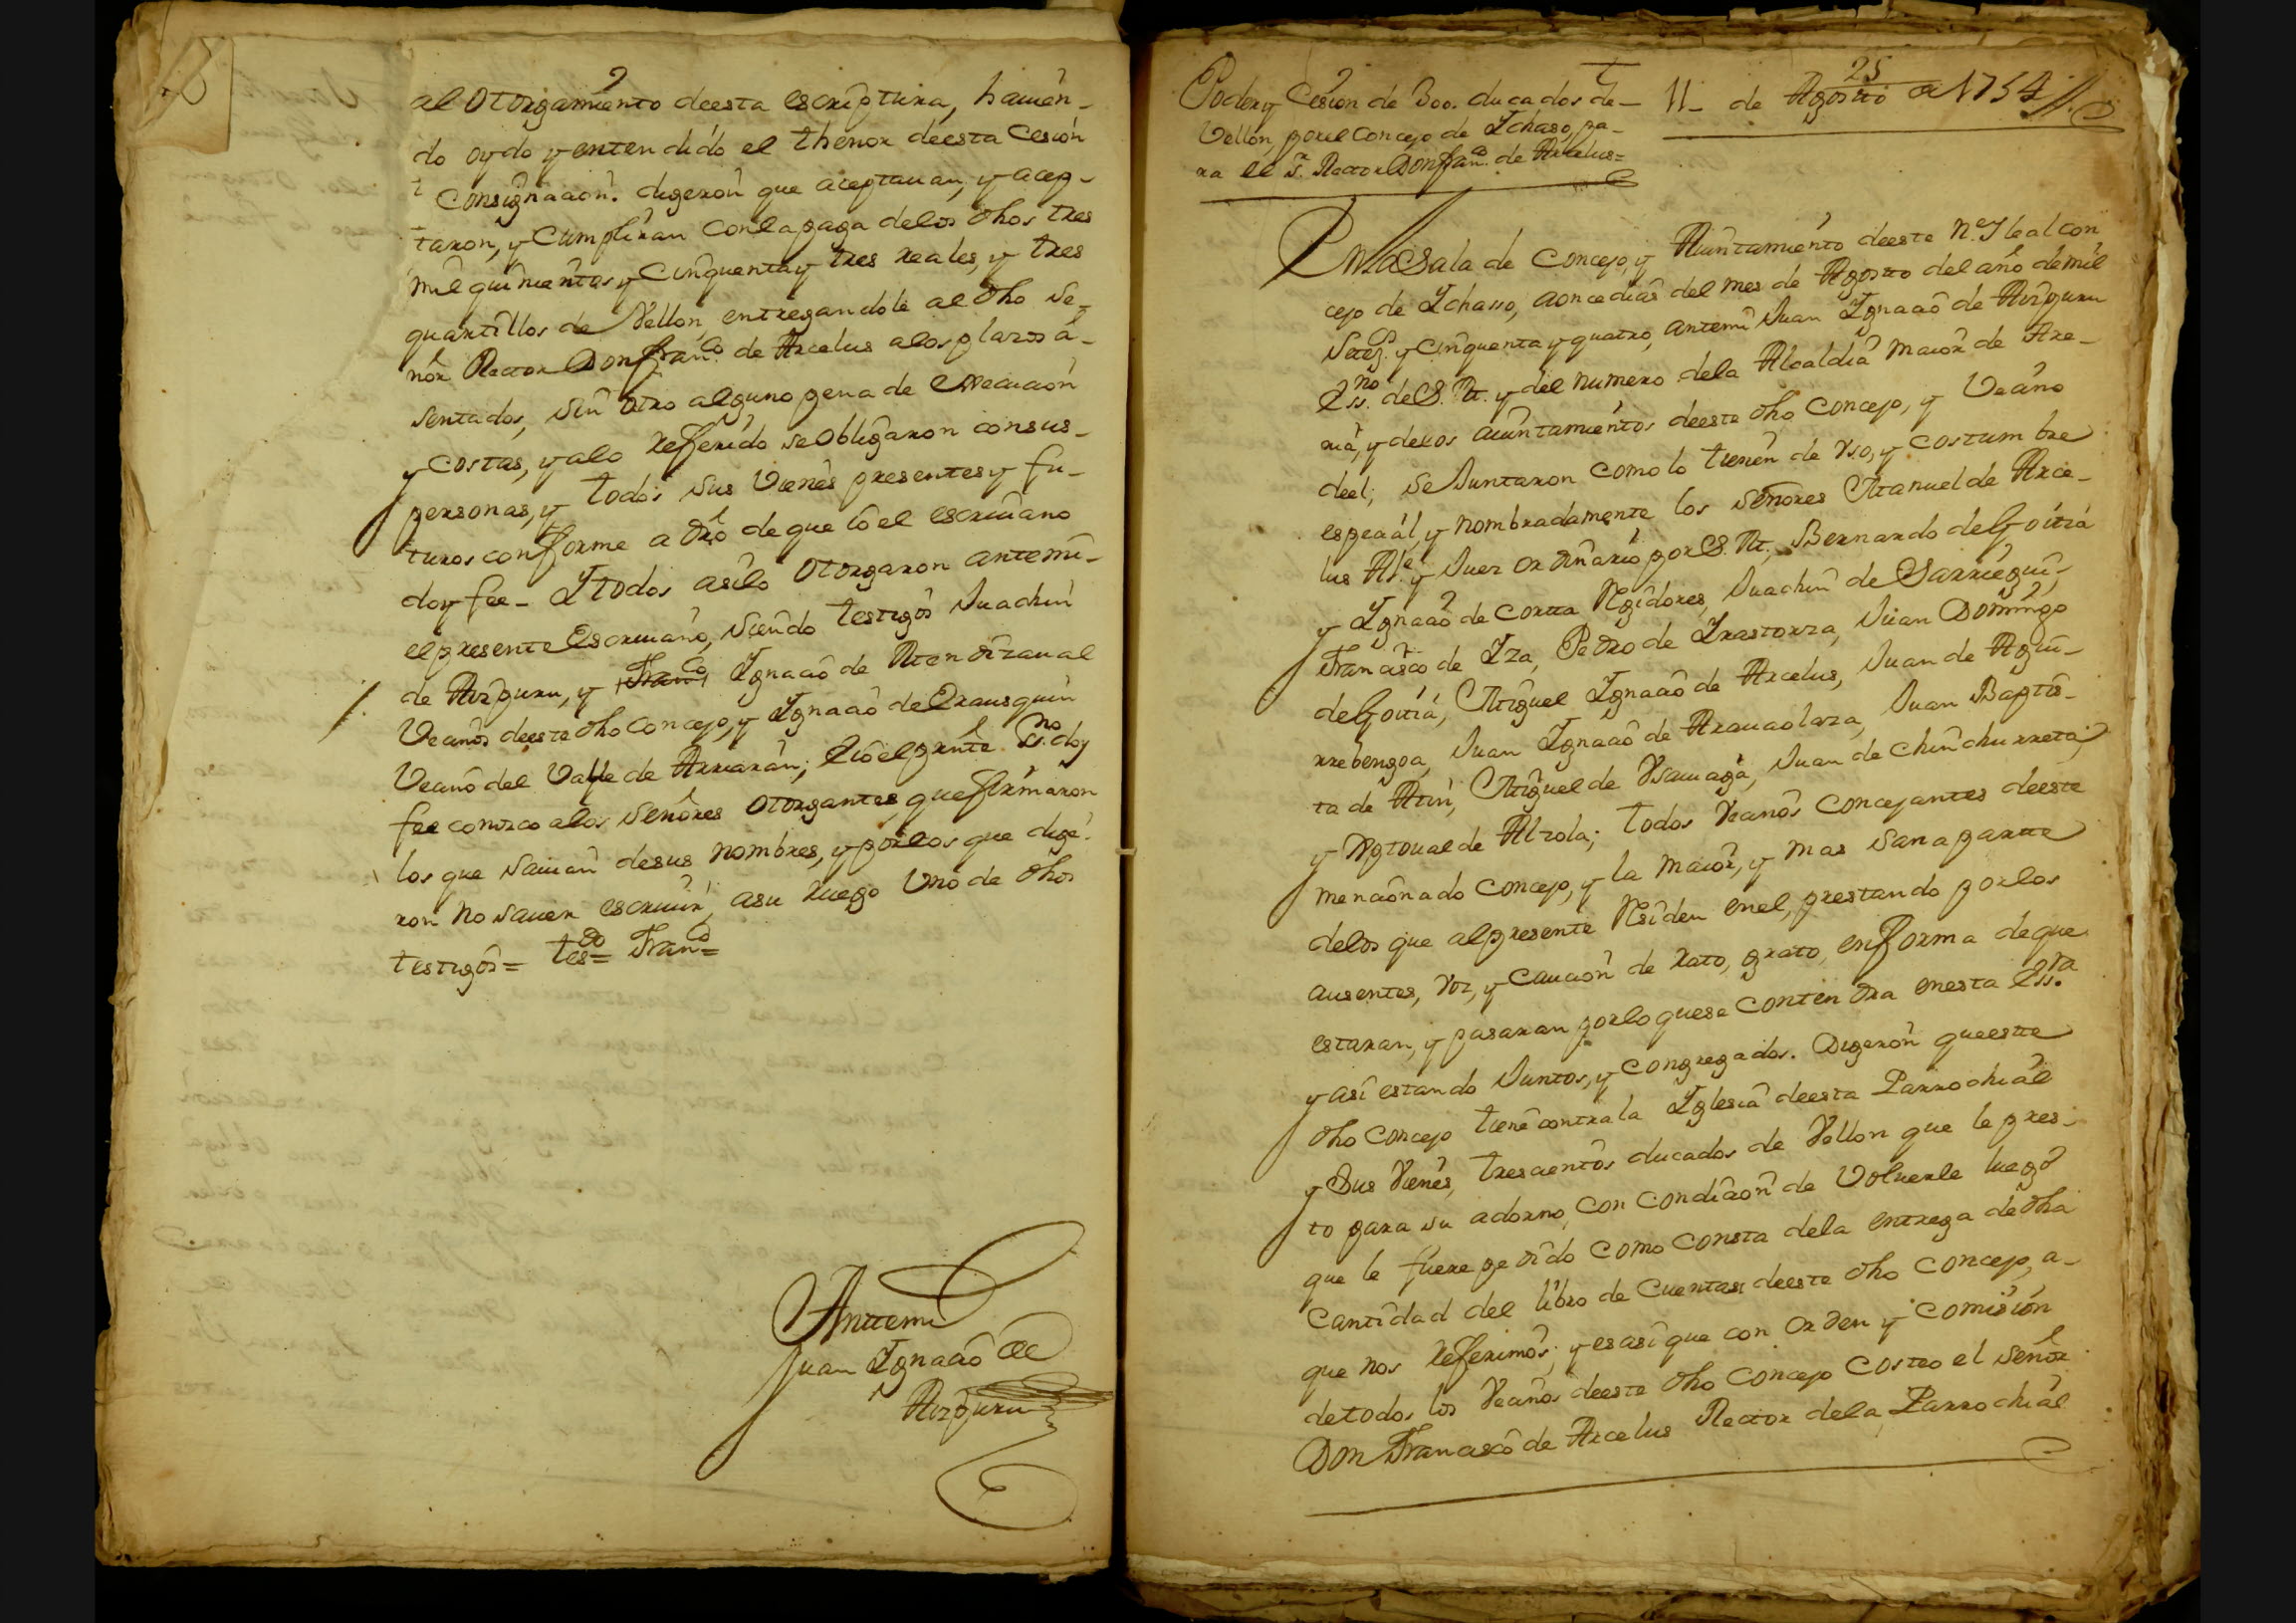 al otorgamiento deesta escriptura, hauien-
do oydo y entendido el thenor deesta Cesión
Consignaaōn. digeron que aceptauan, y acep-
taron, y Cumpliran conla paga delos dhos tres
mil quinientos y Cinquenta y tres reales, y tres
quartillos de Vellon, entregandole al dho Se-
ñor Rector Don Franco. de Arcelus alos plazos a-
sentados, sin otro alguno pena de execuaōn
y costas, y alo referido se obligaron consus-
personas, y todos sus Vienes presentes y fu-
turos conforme a dro de que io el escriuano
doy fee- Y todos asilo otorgaron antemi-
el presente Escriuano, siendo testigos Juachin
de Aizpuru, y Franco Ignacio de Mendizaual
Vecinos deeste dho Concejo, y Ignacio de Erausquin
Vecino del Valle de Arriaran; E io el prste. Ss.no doy
fee conozco alos Señores otorgantes, que firmaron
los que sauian desus nombres, y porlos que dige-
ron no sauer escriuir, asu ruego Uno de dhos
testigos= tesdo= Franco=
Anttemi
Juan Ignacio de
Aizpuru
Poder y Cesion de 300. ducados de-
Vellon, porel Concejo de Ichaso, pa-
ra el Sr. Rector Don Franco. de Arcelus=
25
11- de Agosto de 1754
En la Sala de Concejo, y Aiuntamiento deeste N. Y leal con
cejo de Ichasso, aonce dias del mes de Agosto del año de mil
Setez.s y Cinquenta y quatro, antemi Juan Ignacio de Aizpuru
Ess.no de S. M. y del numero dela Alcaldia maior de Are-
ria, y delos aiuntamientos deeste dho Concejo, y Vecino
deel; se Juntaron como lo tienen de Vso, y costumbre
especial, y nombradamente los señores Manuel de Arce-
lus Alc.e y Juez ordinario por S. M., Bernardo de Goitia
y Ignacio de Cortta Regidores, Juachin de Sarriegui,
Francisco de Iza, Pedro de Irastorza, Juan Domingo
de Goitia, Miguel Ignacio de Arcelus, Juan de Aguí-
rrebengoa, Juan Ignacio de Arauaolaza, Juan Baptis-
ta de Atin, Miguel de Vsauiaga, Juan de Chinchurreta,
y de Alzola; todos Vecinos Concejantes deeste
mencionado Concejo, y la maior, y mas sana partte
delos que alpresente residen enel, prestando porlos
ausentes, voz, y Caucion de rato, grato, enforma deque
estaran, y pasaran porlo quese Contendra enesta Ess.ra
y asi estando Juntos, y Congregados. Digeron queestte
dho Concejo tiene contra la Iglesia deesta Parrochial
y Sus Vienes, trescientos ducados de Vellon que le pres-
to para su adorno, con condicion de Voluerle luego
que le fuere pedido como consta dela entrega de dha
Cantidad del libro de Cuentas deeste dho Concejo, a-
que nos referimos; y es asi que con orden y Comision
detodos los Vecinos deeste dho Concejo Costeo el Señor
Don Francisco de Arcelus Rector dela Parrochial